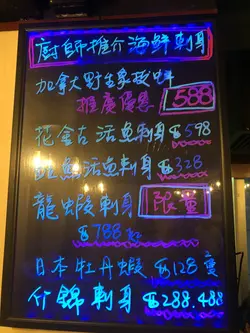 廚師推介海鮮刺身
加拿大野生象拔蚌
推廣優惠 $588
花金古活魚刺身 $598
活魚刺身 $328
龍蝦刺身 限量
$788
日本牡丹蝦 $128隻
什錦刺身 $288.488